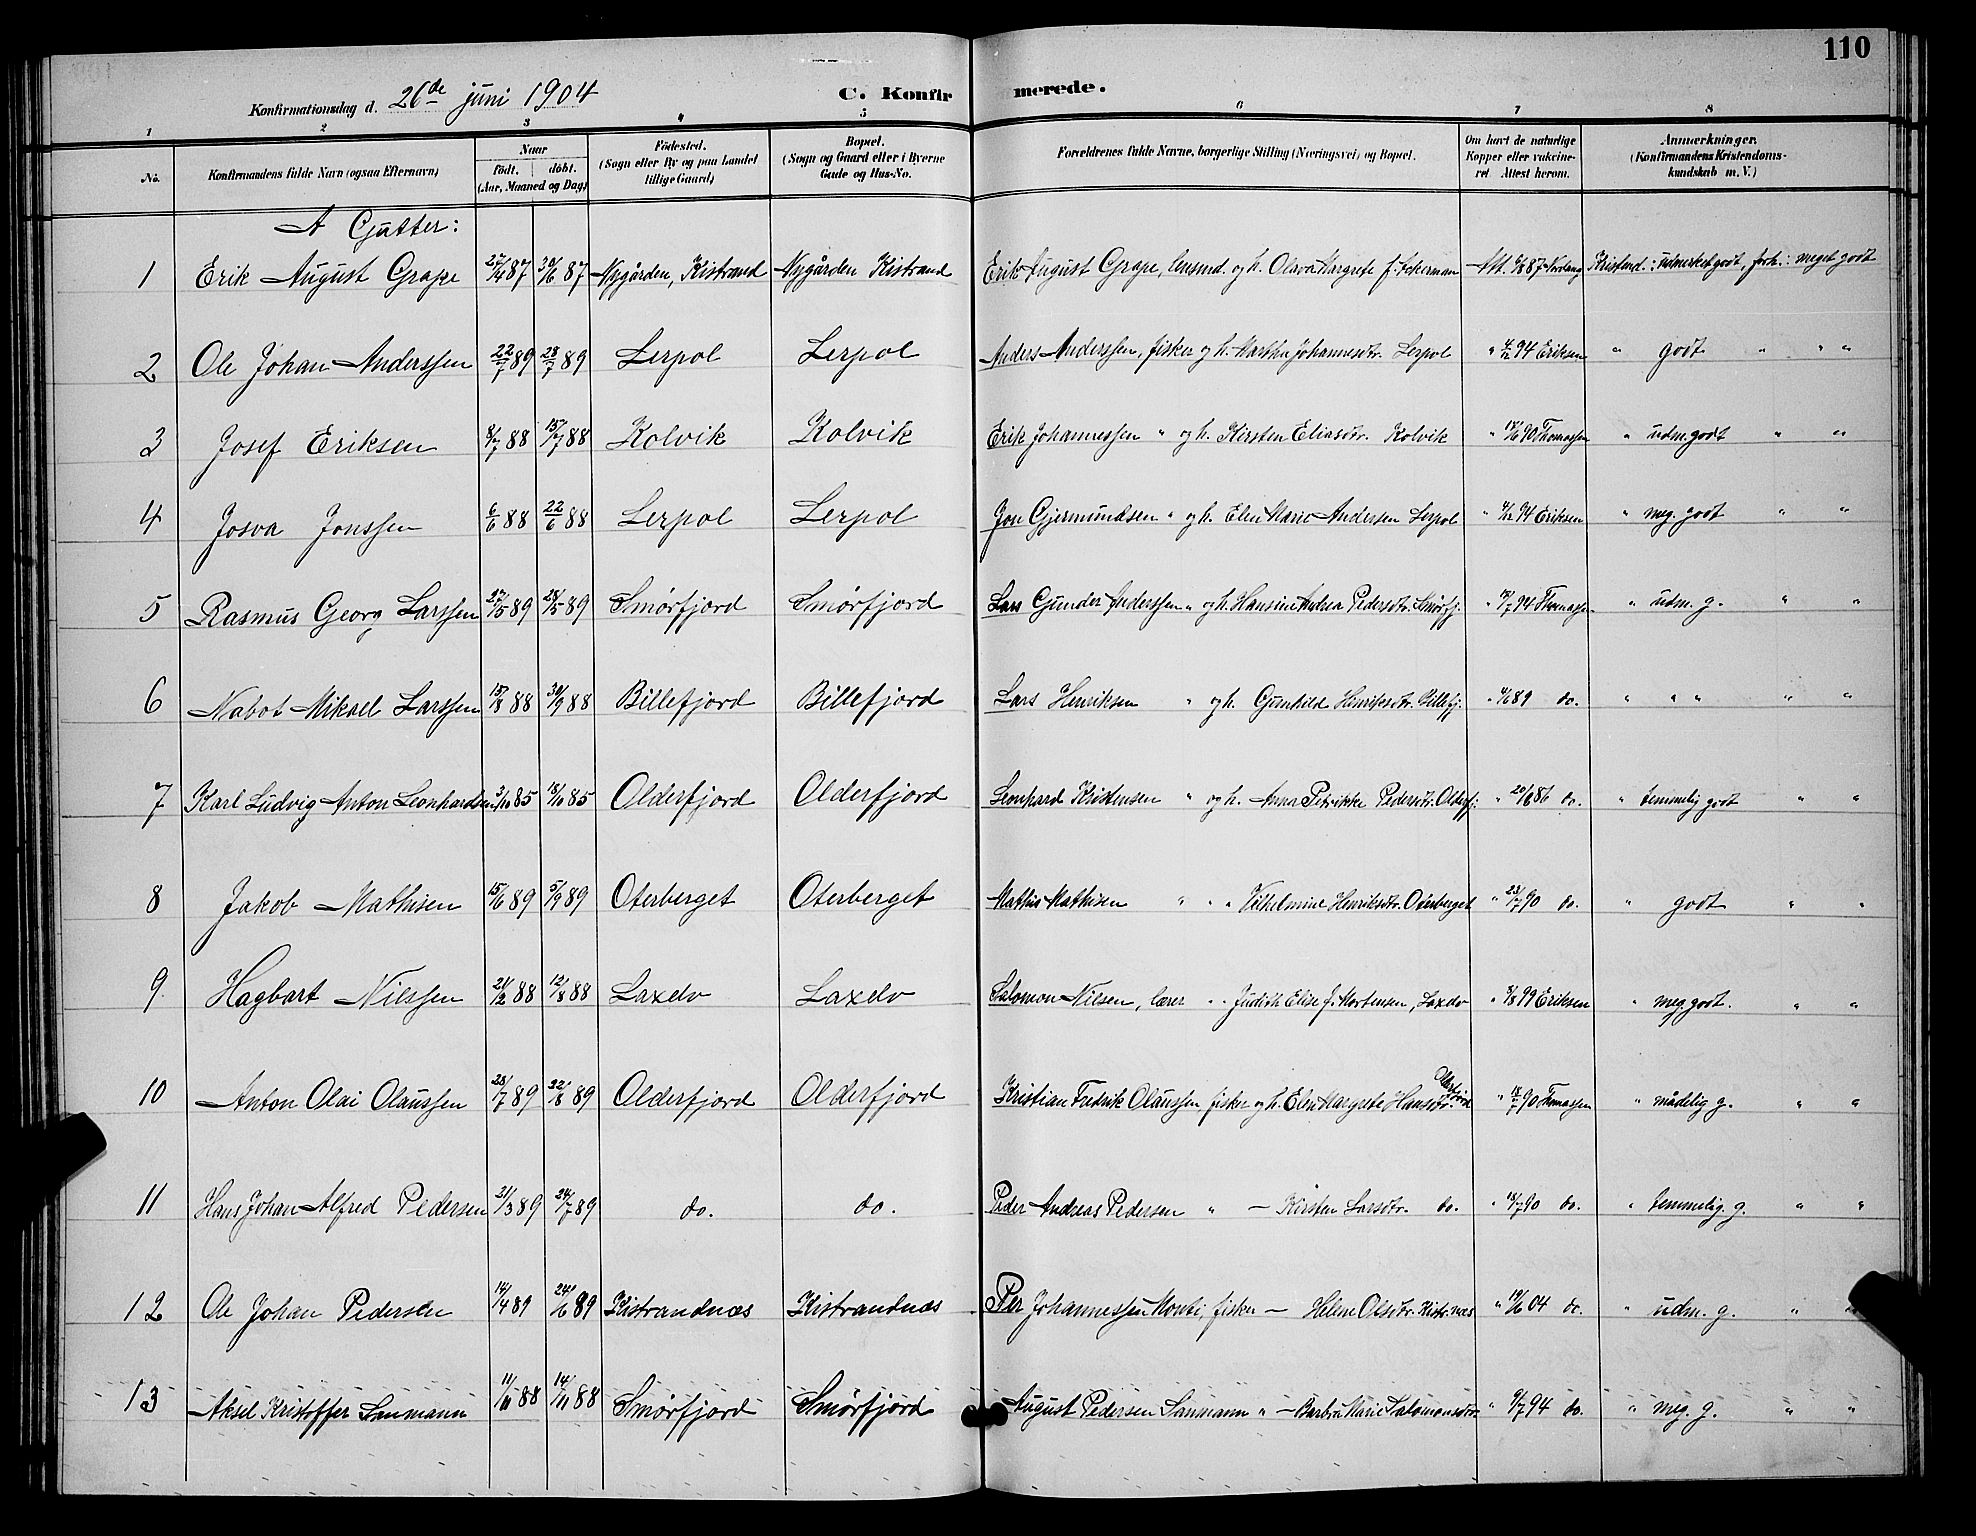 110
Konfirmationsdag d. 26de juni 1904 C. Konfir merede.
1 2 3 4 5 6 7 8
No. Konfirmandens fulde Navn (ogsaa Efternavn) Naar født. døbt. (Aar, Maaned og Dag) Fødested. (Sogn eller By og paa Landet tillige Gaard) Bopæl. (Sogn og Gaard eller i Byerne Gade og Hus-No. Forældrenes fulde Navne, borgerlige Stilling (Næringsvei) og Bopæl. Om havt de naturlige Kopper eller vakcineret Attest herom. Anmærkninger. (Konfirmandens Kristendomskundskab m. V.)
A Gutter:
1 Erik August Grape 27/4 87 30/6 87 Nygården, Kistrand Nygården Kistrand Erik August Grape, lensmd. og h. Olava Margrete f. Ackerman Att. 87 Kristend.: udmerket godt, forh.: meget godt
2 Ole Johan Anderssen 22/7 89 28/7 89 Lerpol Lerpol Anders Anderssen, fisker og h. Martha Johannesdtr. Lerpol " 94 Eriksen " godt " " "
3 Josef Eriksen 8/7 88 15/7 88 Kolvik Kolvik Erik Johannessen " og h. Kirsten Eliasdtr. Kolvik " 90 Thomassen " udm. godt " "
4 Josva Jonssen 6/6 88 22/6 88 Lerpol Lerpol Jon Gjermundsen " og h. Elen Marie Andersen Lerpol " 94 Eriksen " meg. godt " "
5 Rasmus Georg Larssen 27/5 89 28/5 89 Smørfjord Smørfjord Lars Gunder Anderssen " og h. Hansine Andrea Pedersdtr. Smørfj. " 94 Thomassen " udm. g. " "
6 Nabot Mikael Larssen 15/8 88 30/9 88 Billefjord Billefjord Lars Henriksen " og h. Gunhild Henriksdtr. Billefj. " 89 do. " " " " "
7 Karl Ludvig Anton Leonhardsen 3/10 85 18/10 85 Olderfjord Olderfjord Leonhard Kristensen " og h. Anna Petrikke Pedersdtr. Olderfj. " 20/8 86 do. " temmelig godt " "
8 Jakob Mathisen 15/6 89 5/9 89 Oterberget Oterberget Mathis Mathisen " " " Vilhelmine Henriksdtr. Oterberget " 23/7 90 do. " godt " "
9 Hagbart Nilssen 21/2 88 12/8 88 Laxelv Laxelv Salomon Nilsen, lærer " " Judith Elise f. Mortensen, Laxelv " 8/8 99 Eriksen " meg. godt. " "
10 Anton Olai Olaussen 23/7 89 22/8 89 Olderfjord Olderfjord Kristian Fredrik Olaussen fisker og h. Elen Margrete Hansdtr. Olderfjord " 18/7 90 Thomassen " mådelig g. " "
11 Hans Johan Alfred Pedersen 21/3 89 24/7 89 do. do. Peder Andreas Pedersen " — Kirsten Larsdtr. do. " 18/7 90 do. " temmelig g. " "
12 Ole Johan Pedersen 14/4 89 24/6 89 Kistrandnæs Kistrandnæs Per Johannessen Monti, fisker — Helene Olsdtr. Kistr.næs " 19/6 04 do. " udm. g. " "
13 Aksel Kristoffer Sanmann 11/10 88 14/11 88 Smørfjord Smørfjord August Pedersen Sanmann " — Barbra Marie Salomonsdtr. " 9/7 94 do. " meg. g. " "